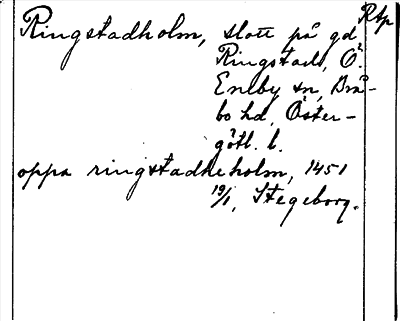 Rtp
Ringstadholm, slott på gd
Ringstad, Ö.
Eneby sn, Brå-
bo hd, Öster-
götl. l.
oppa ringstadheholm, 1451
19/1, Stegeborg.